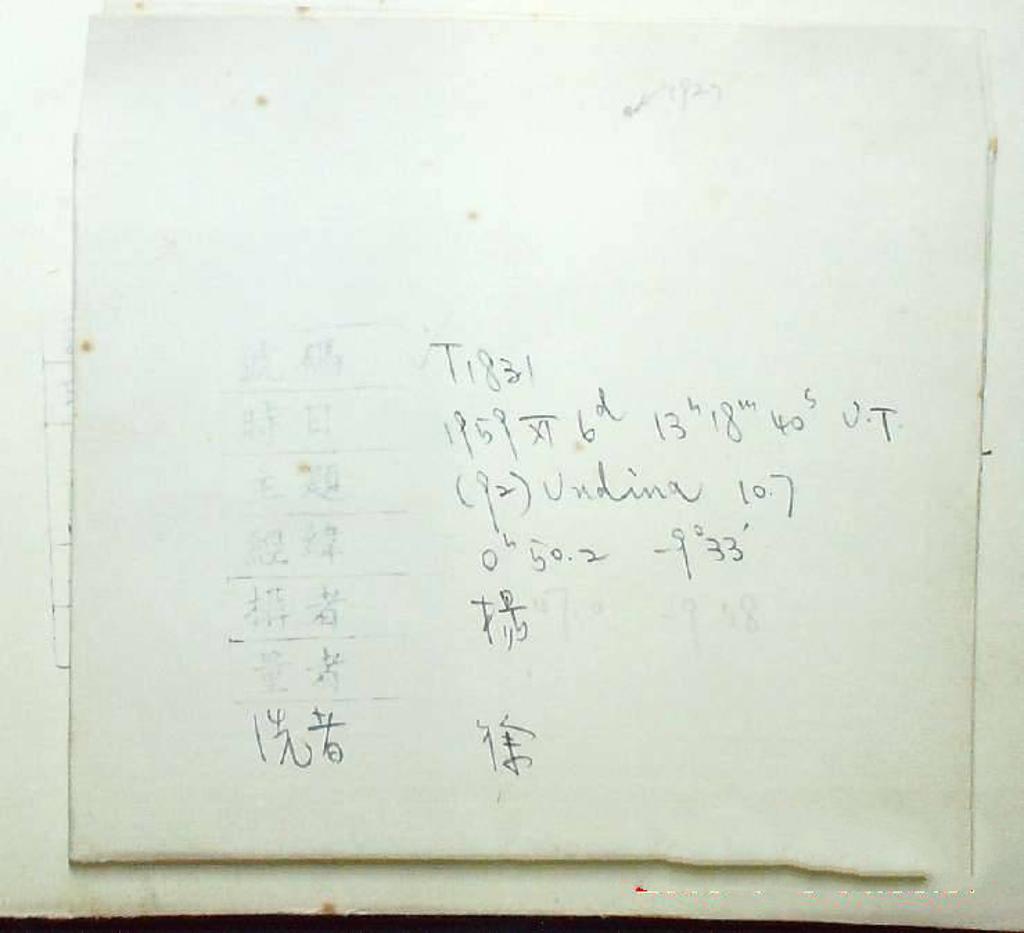 號碼 T1831
時日 1959 XI 6ᵈ 13ʰ18ᵐ40ˢ U.T.
主題 (92) Undina 10.7
經緯 0ʰ50.2 -9°33′
攝者 楊
量者
洗者 徐